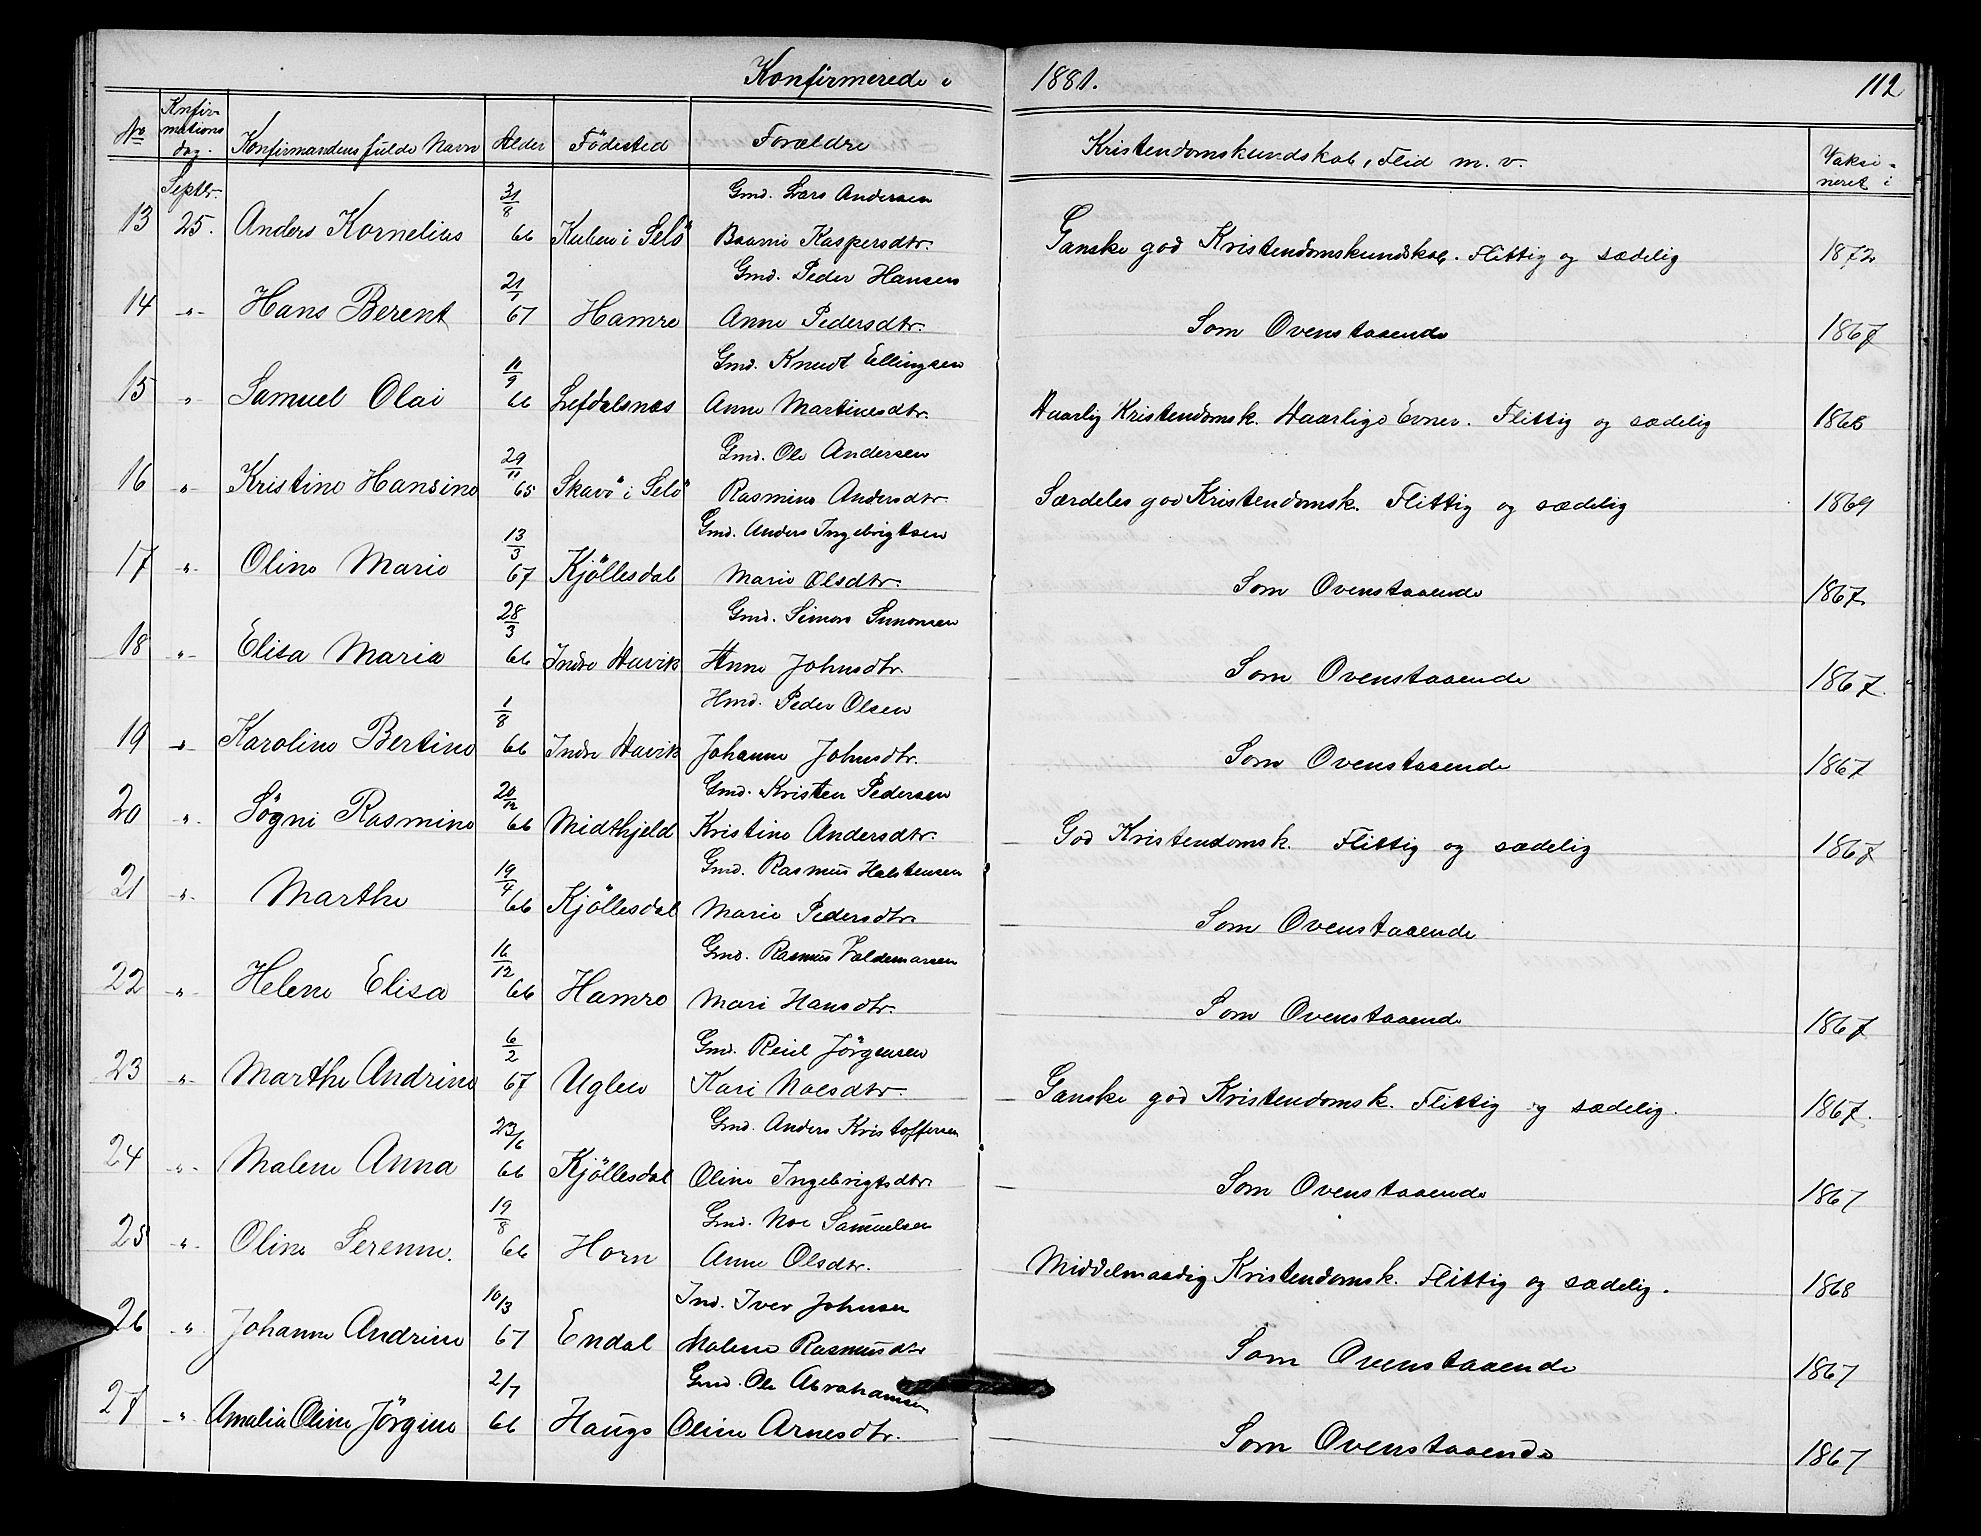 Konfirmerede i 1881. 112
No Knfir-mations dag. Konfirmandens fulde Navn Alder Födested Forældre Kristendomskundskab, Flid m. v. Vaksi-neret i
Septbr. 31/8 Gmd. Lars Andersen
13 25. Anders Kornelius 66 Kuben i Selö Kaspersdtr. Ganske god Kristendomskundskab. Flittig og sædelig 1872
21/1 Gmd. Peder Hansen
14 -"- Hans Berent 67 Hamre Anne Pedersdtr. Som Ovenstaaende 1867
11/9 Gmd. Knudt Ellingsen
15 " Samuel Olai 66 Lefdalsnæs Anne Martinesdtr. Maarlig Kristendomsk. Maarlige Evner. Flittig og sædelig 1868
29/11 Gmd. Ole Andersen
16 " Kristine Hansine 65 Skavö i Selö Rasmine Andersdtr. Særdeles god Kristendomsk. Flittig og sædelig 1869
13/3 Gmd. Anders Ingebrigtsen
17 -"- Oline Marie 67 Kjöllesdal Marie Olsdtr. Som Ovenstaaende 1867
28/3 Gmd. Simon Simonsen
18 -"- Elisa Maria 66 Indre Havik Anne Johnsdtr. Som Ovenstaaende 1867
1/8 Hmd. Peder Olsen
19 " Karoline Bertine 66 Indre Havik Johanne Johnsdtr. Som Ovenstaaende 1867
20/12 Gmd. Kristen Pedersen
20 " Sögni Rasmine 66 Midthjeld Kristine Andersdtr. God Kristendomsk. Flittig og sædelig 1867
19/4 Gmd. Rasmus Halstensen
21 " Marthe 66 Kjöllesdal Marie Pedersdtr. Som Ovenstaaende
16/12 Gmd. Rasmus Valdemarsen
22 " Helene Elisa 66 Hamre Mari Hansdtr. Som Ovenstaaende 1867
6/2 Gmd. Jörgensen
23 " Marthe Andrine 67 Uglen Kari Noesdtr. Ganske god Kristendomsk. Flittig og sædelig. 1867.
23/6 Gmd. Anders Kristoffersen
24 " Malene Anna 66 Kjöllesdal Oline Ingebrigtsdtr. Som Ovenstaaende 1867
19/8 Gmd. Noe Samuelsen
25 " Oline Serenne. 66 Horn Anne Olsdtr. Middelmaadig Kristendomsk. Flittig og sædelig. 1868
10/3 Ind. Iver Johnsen
26 " Johanne Andrine 67 Endal Malene Rasmusdtr Som Ovenstaaende 1867
2/7 Gmd. Ole Abrahamsen
27 " Amalia Oline Jörgine 66 Haugs Oline Arnesdtr. Som Ovenstaaende 1867